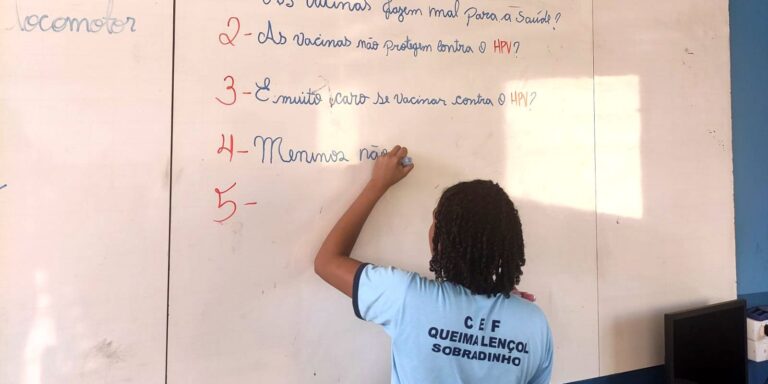 locomotor
vacinas fazem mal para a saúde?
2- As vacinas não protegem contra o HPV?
3- É muito caro se vacinar contra o HPV?
4- Meninos não
5-
C E F
QUEIMA LENÇOL
SOBRADINHO